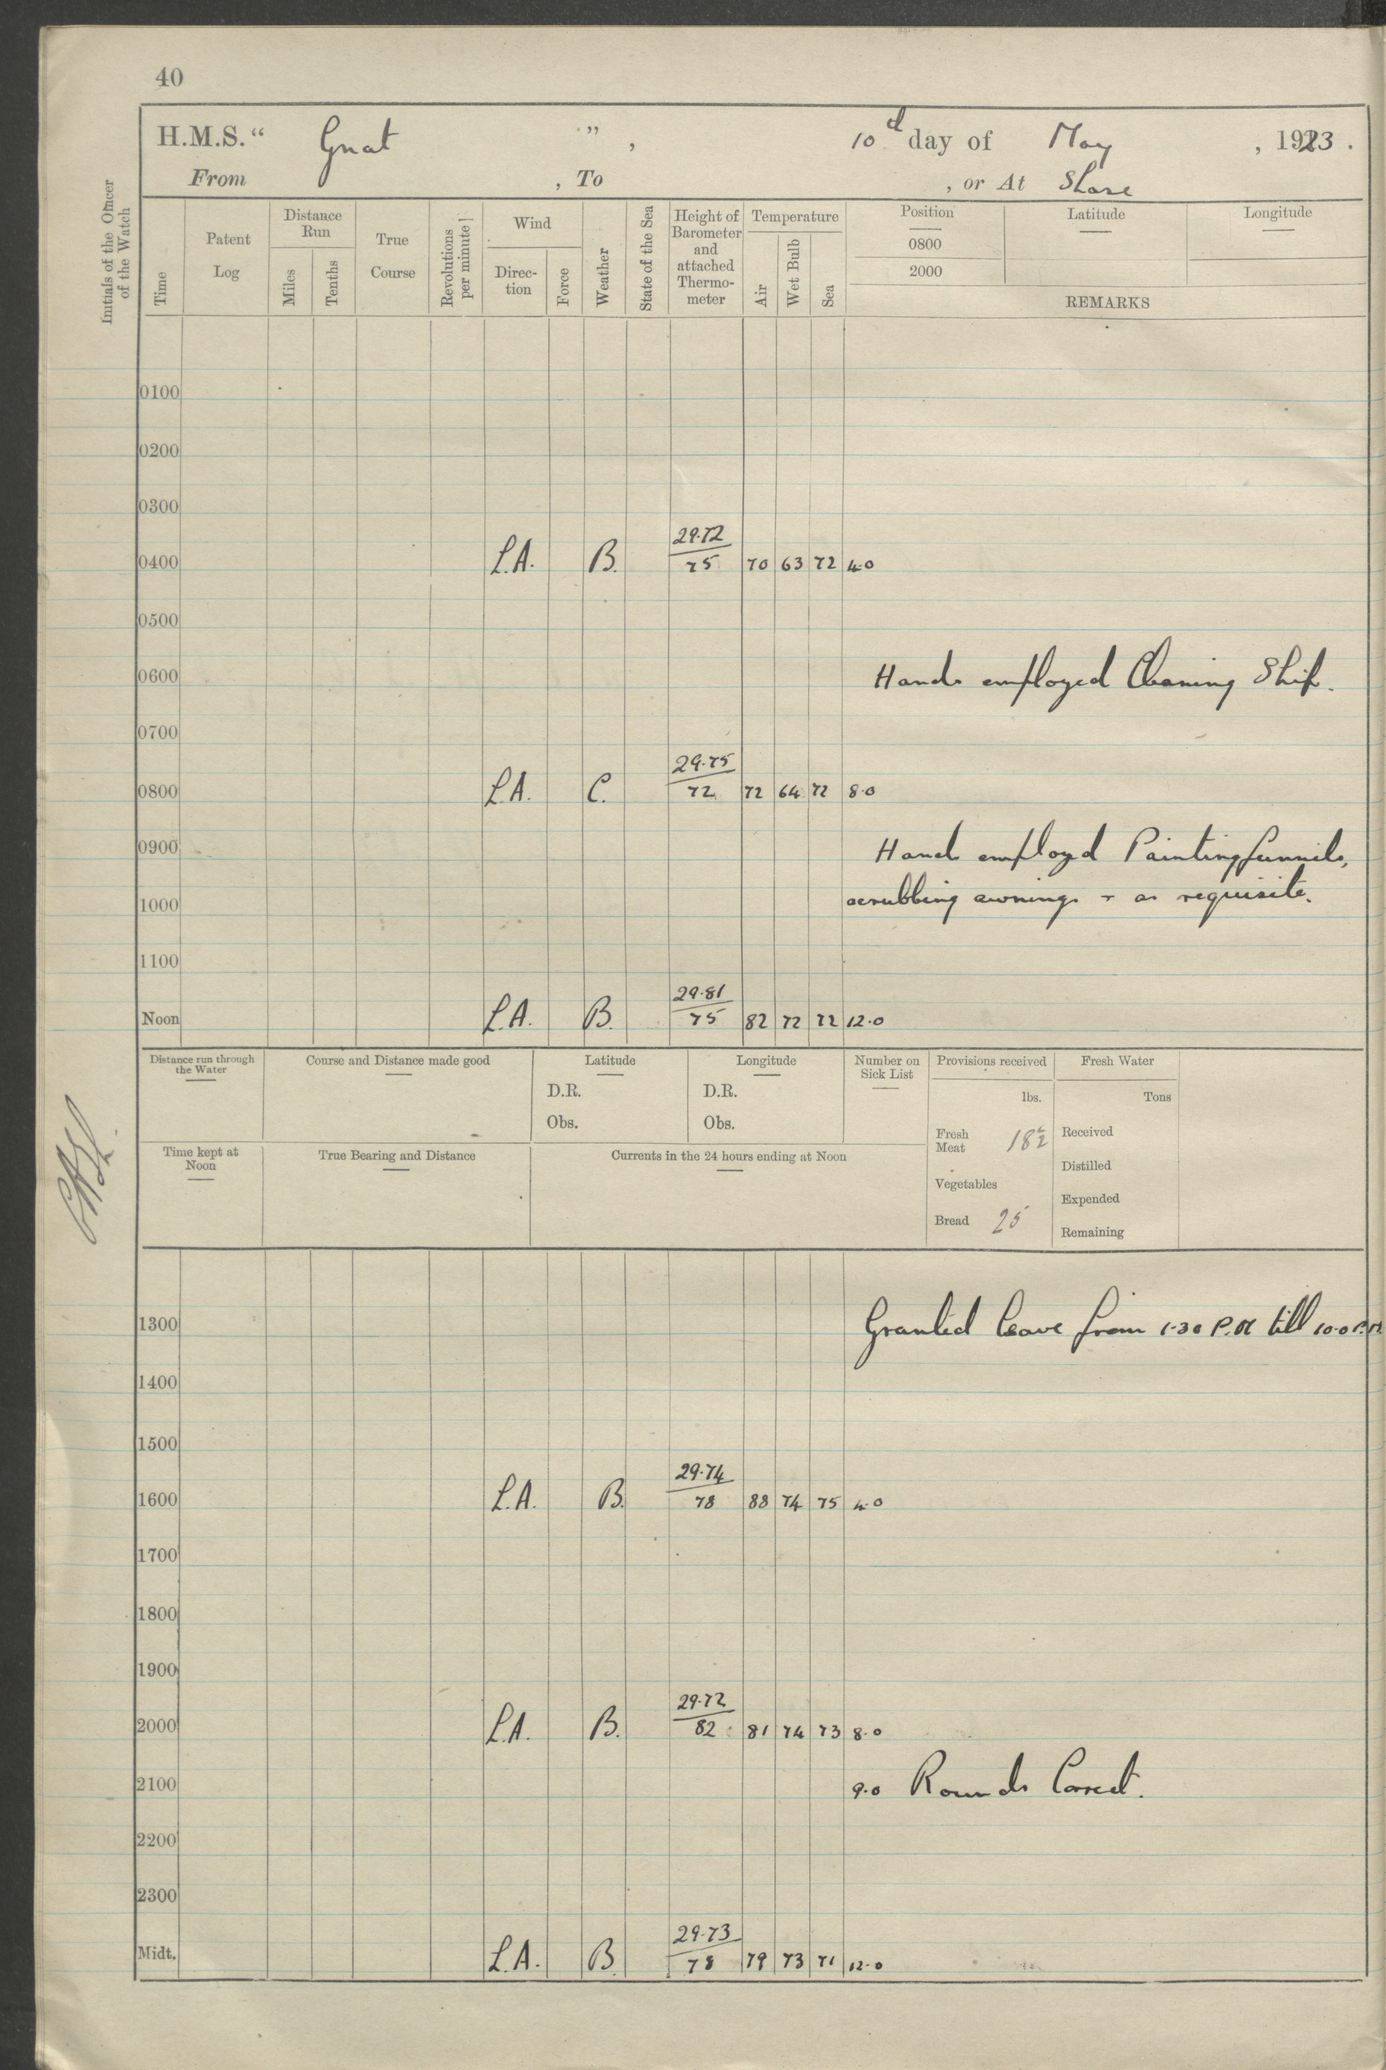 40
H.M.S. " Gnat ", 10d day of May, 1923.
From , To , or At Shasi
Initials of the Officer of the Watch
Time
Patent Log
Distance Run
Miles
Tenths
True Course
Revolutions per minute
Wind
Direc-tion
Force
Weather
State of the Sea
Height of Barometer and attached Thermo-meter
Temperature
Air
Wet Bulb
Sea
Position
0800
2000
Latitude
Longitude
REMARKS
0100
0200
0300
29.72
0400 L.A. B. 75 70 63 72 4.0
0500
0600 Hands employed Cleaning Ship.
0700
29.75
0800 L.A. C. 72 72 64 72 8.0
0900 Hands employd Painting funnels,
1000 scrubbing awnings + as requisite.
1100
29.81
Noon L.A. B. 75 82 72 72 12.0
Distance run through the Water
Course and Distance made good
Latitude
D.R.
Obs.
Longitude
D.R.
Obs.
Number on Sick List
Provisions received
lbs.
Fresh Meat 18½
Vegetables
Bread 25
Fresh Water
Tons
Received
Distilled
Expended
Remaining
Time kept at Noon
True Bearing and Distance
Currents in the 24 hours ending at Noon
1300 Granted leave from 1-30 P.M till 10.0 P.M
1400
1500
29.74
1600 L.A. B. 78 88 74 75 4.0
1700
1800
1900
29.72
2000 L.A. B. 82 81 74 73 8.0
2100 9.0 Rounds Correct.
2200
2300
29.73
Midt. L.A. B. 78 79 73 71 12.0